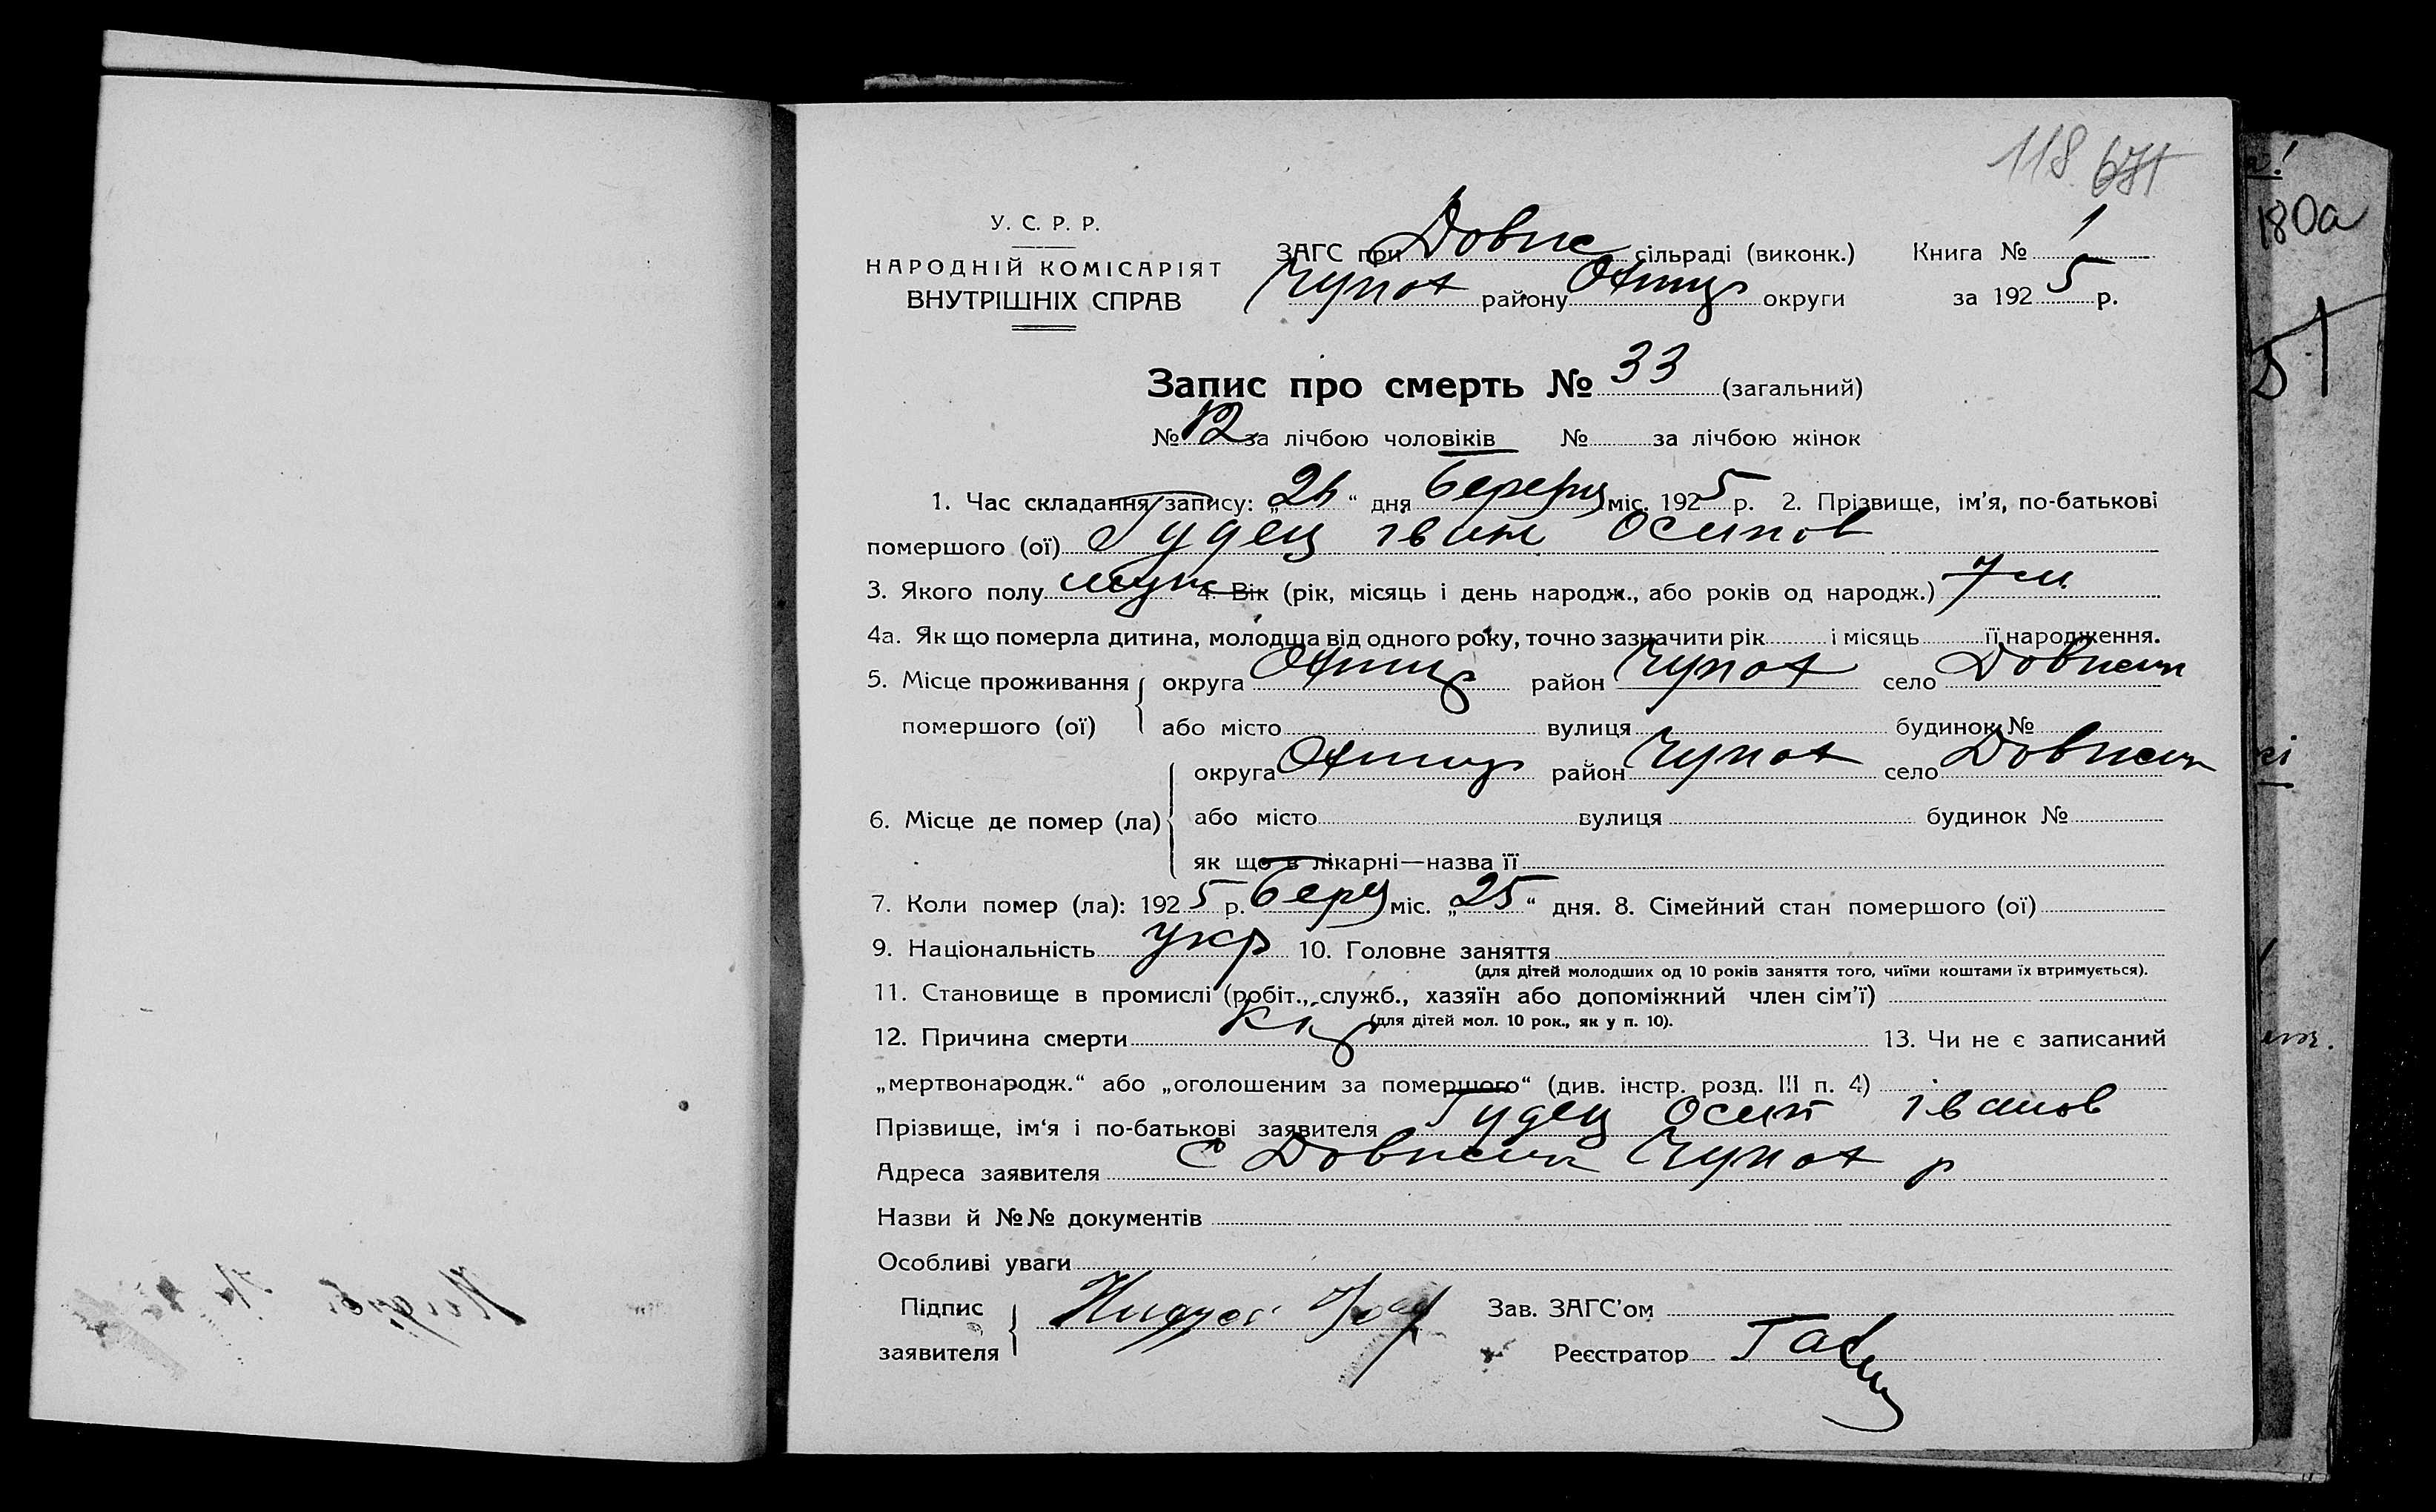 118 671
У. С. Р. Р.
НАРОДНІЙ КОМІСАРІЯТ
ВНУТРІШНІХ СПРАВ
ЗАГС при Довж сільраді (виконк.) Книга № 1
Чупах району Охтиц округи за 1925 р.
Запис про смерть № 33 (загальний)
№ 12 за лічбою чоловіків № за лічбою жінок
1. Час складання запису: „26“ дня березня міс. 1925 р. 2. Прізвище, ім’я, по-батькові
помершого (ої) Гудец іван Осипов
3. Якого полу муж 4. Вік (рік, місяць і день народж., або років од народж.) 7 м.
4а. Як що померла дитина, молодща від одного року, точно зазначити рік і місяць її народження.
5. Місце проживання округа район село
помершого (ої) або місто вулиця будинок №
округа район село
6. Місце де помер (ла) або місто вулиця будинок №
як що в лікарні—назва її
7. Коли помер (ла): 1925 р. берц міс. „25“ дня. 8. Сімейний стан помершого (ої)
9. Національність укр 10. Головне заняття
(для дітей молодших од 10 років заняття того, чиїми коштами їх втримується).
11. Становище в промислі (робіт., служб., хазяїн або допоміжний член сім’ї)
(для дітей мол. 10 рок., як у п. 10).
12. Причина смерти 13. Чи не є записаний
„мертвонародж.“ або „оголошеним за помершого“ (див. інстр. розд. III п. 4)
Прізвище, ім‘я і по-батькові заявителя Гудец Осип іванов
Адреса заявителя с р
Назви й №№ документів
Особливі уваги
Підпис
заявителя
Зав. ЗАГС’ом
Реєстратор
180а